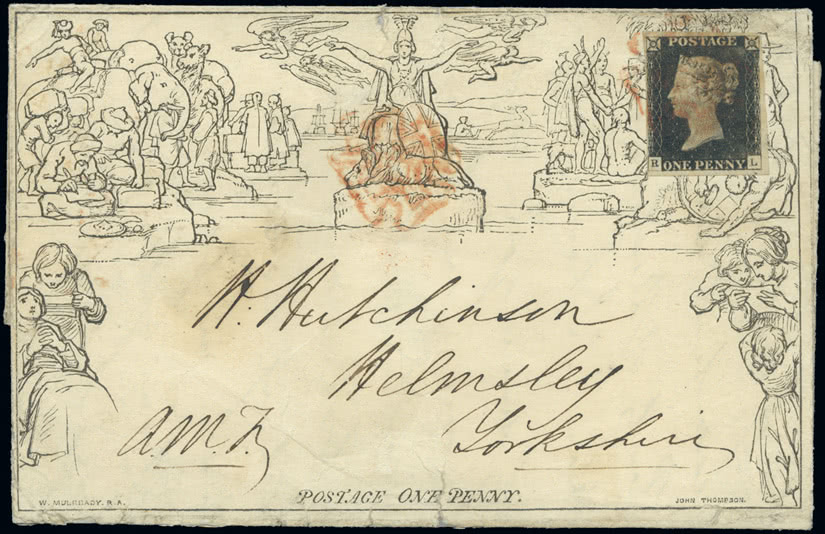 POSTAGE
R L
ONE PENNY
H. Hutchinson
Helmsley
Yorkshire
A.M.F.
POSTAGE ONE PENNY.
W. MULREADY. R.A.
JOHN THOMPSON.